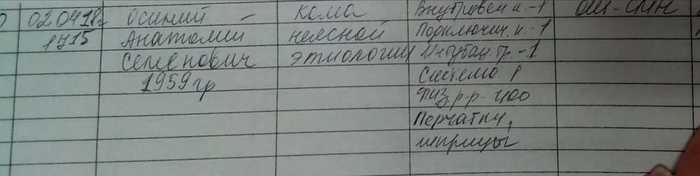 02.04.18г Осиний кома Внутривен к-1
1715 Анатолий неясной Подключич. к-1
Семёнович этиологии Интубац тр.-1
1959гр Система 1
Физ р-р-400
Перчатки,
шприцы